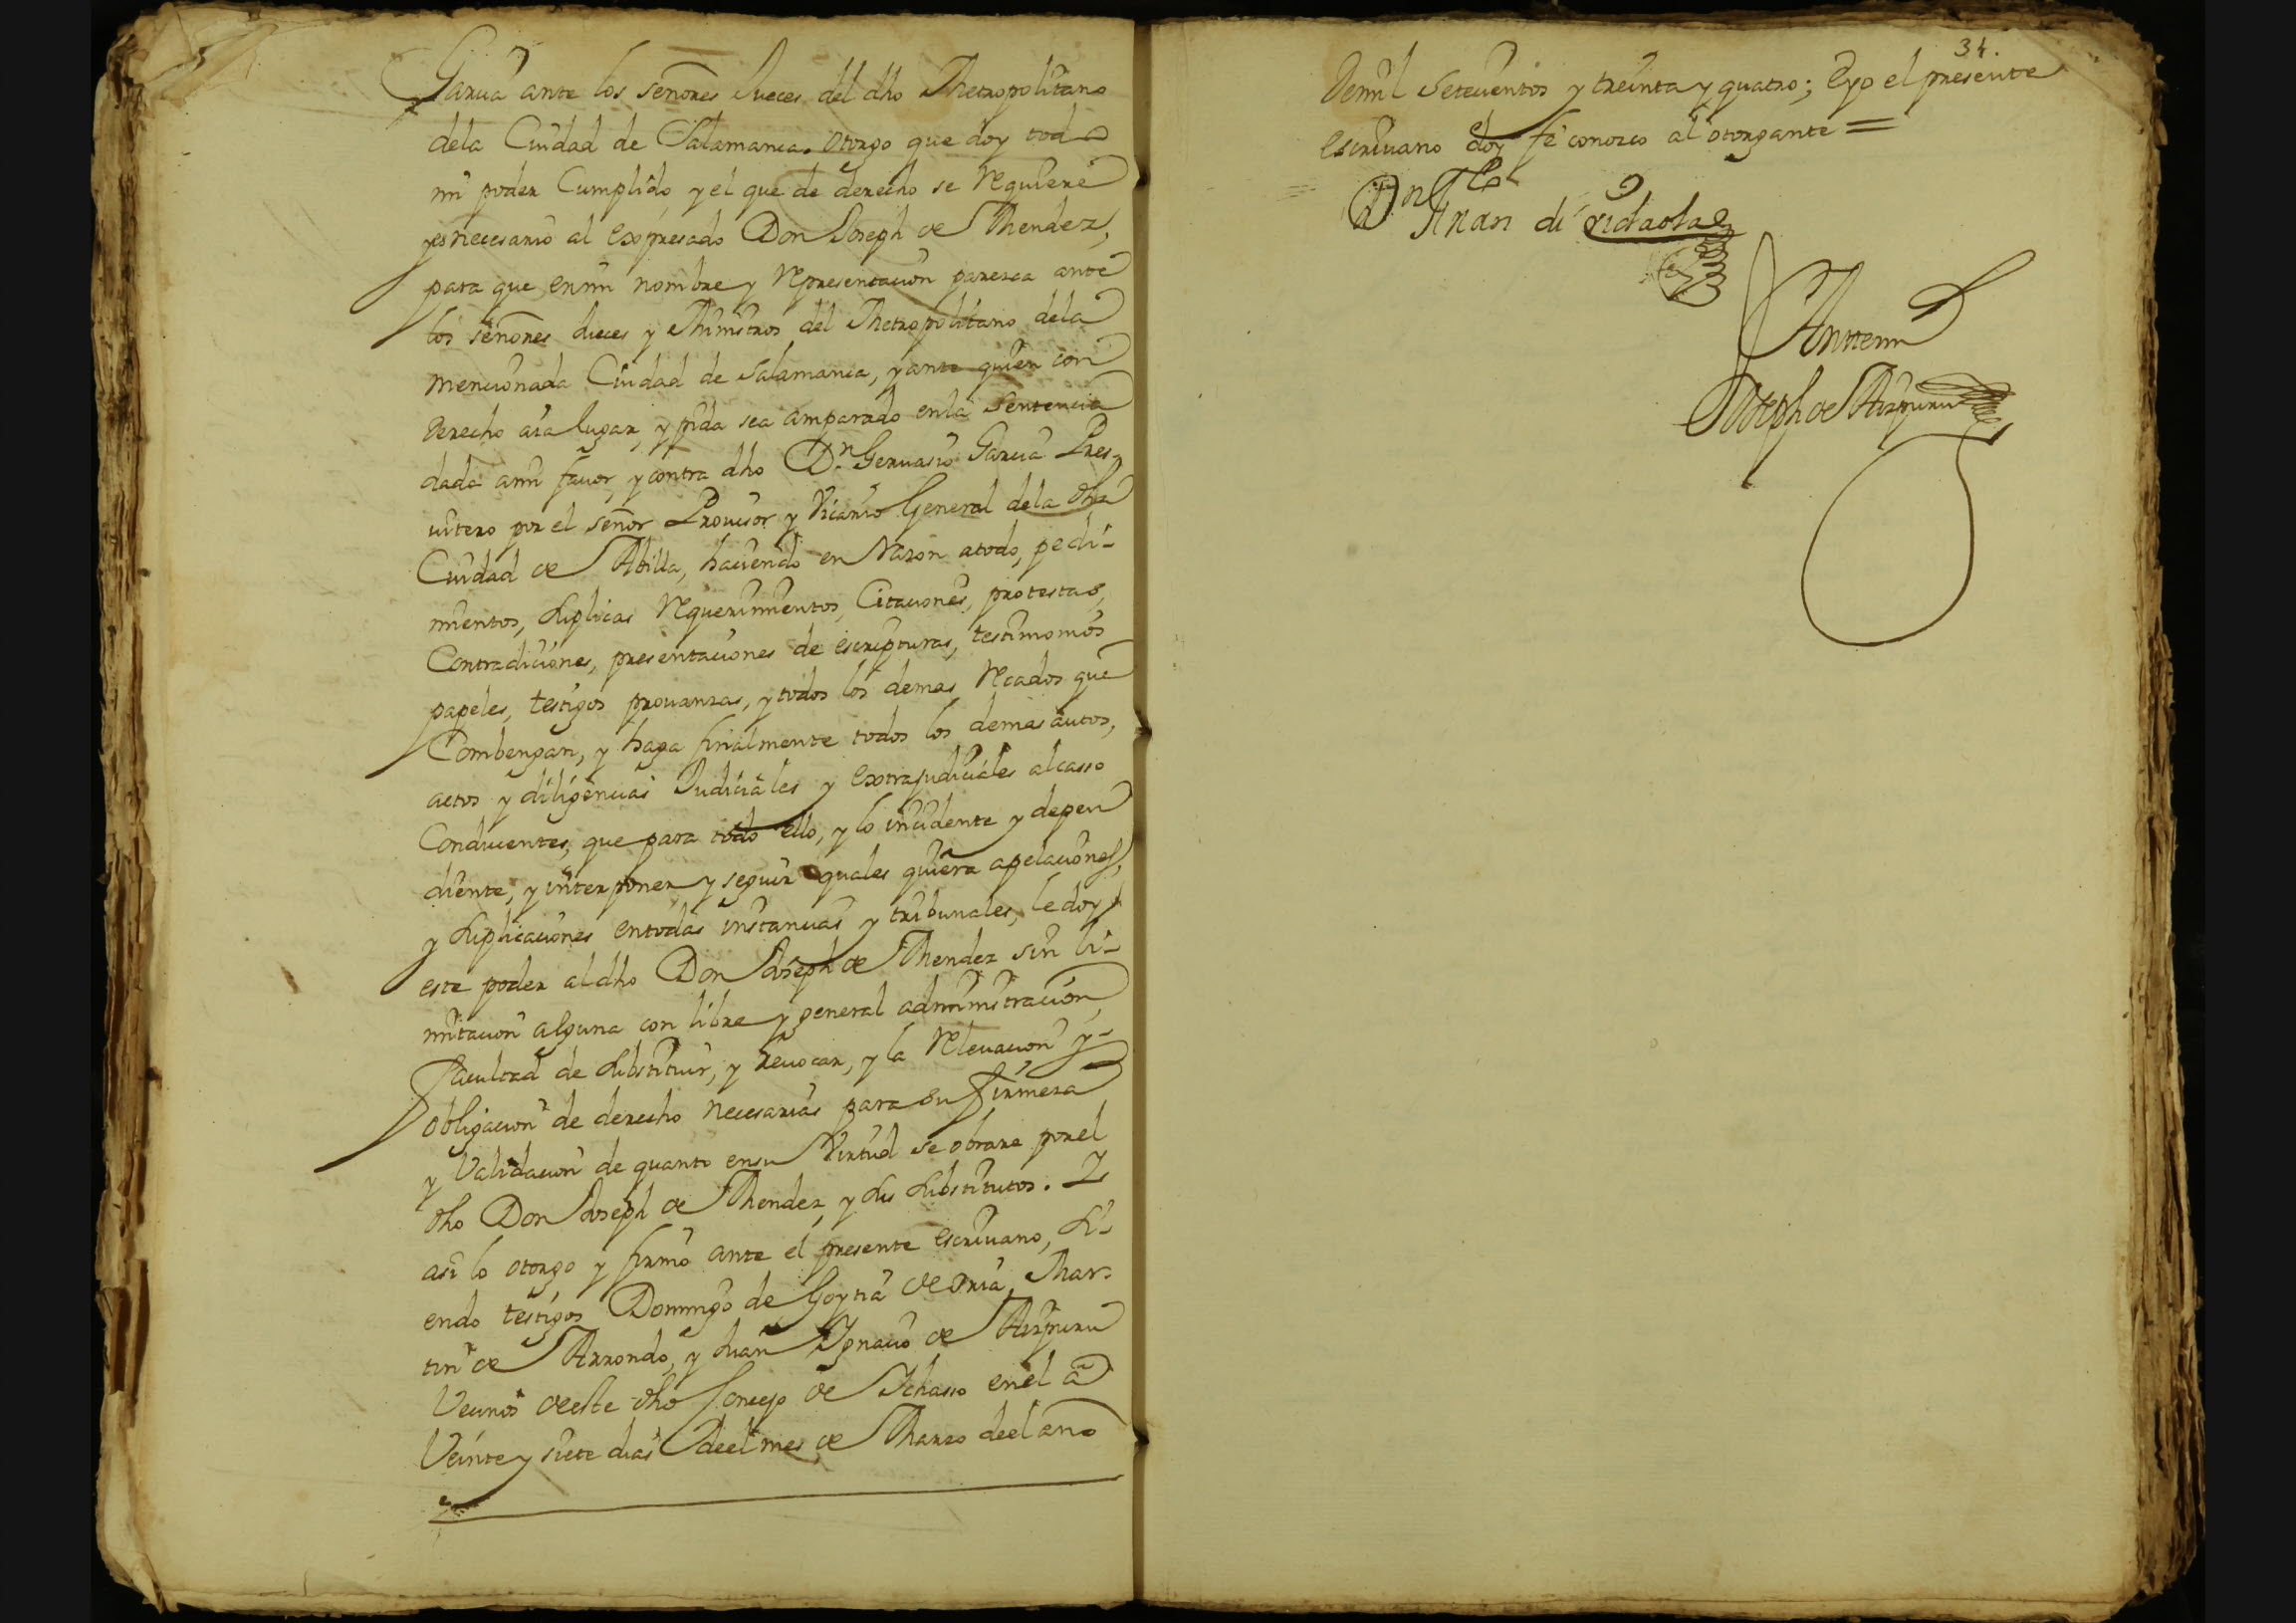 Garcia ante los señores Jueces del dho Metropolitano
dela Ciudad de Salamanca. otorgo que doy todo
mi poder Cumplido, y el que de derecho se requiere
y es necesario al expresado Don Joseph de Mendez,
para que en mi nombre y representacion paresca ante
los señores Jueces y Ministros del Metropolitano dela
mencionada Ciudad de Salamanca, y ante quien con
derecho aia lugar, y pida sea amparado enla Sentencia
dada ami favor, y contra dho Dn. Gervasio Garcia Pres-
vitero por el señor Provisor y Vicario General dela dha
Ciudad de Abilla, haciendo en razon atodo, pedi-
mientos, suplicas requerimientos, Citaciones, protestas,
Contradiciones, presentaciones de escripturas, testimonios
papeles, testigos provanzas, y todos los demas recados que
Combengan, y haga finalmente todos los demas autos,
actos y diligencias Judiciales y extrajudiciales alcasso
Conducentes, que para todo ello, y lo incidente y depen
diente, y interponer y seguir quales quiera apelaciones,
y suplicaciones entodas instancias y tribunales, le doy
este poder al dho Don Joseph de Mendez sin li-
mitacion alguna con libre y general administracion,
Facultad de substituir, y revocar, y la relevacion y-
obligacion de derecho necesarias para su firmeza
y Validacion de quanto ensu Virtud se obrare porel
dho Don Joseph de Mendez, y sus substitutos. Y
asi lo otorgo y firmo ante el presente escrivano, si-
endo testigos Domingo de Goytia de Oria, Mar-
tin de Arrondo, y Juan Ignacio de Aizpuru
Vecinos deeste dho Concejo de Ichasso enel a
Veinte y siete dias deel mes de Marzo deel año
34.
Demil Setecientos y treinta y quatro; Eyo el presente
escrivano doy fe conozco al otorgante =
Dn
Juan de
Antemi
Joseph de Aizpuru